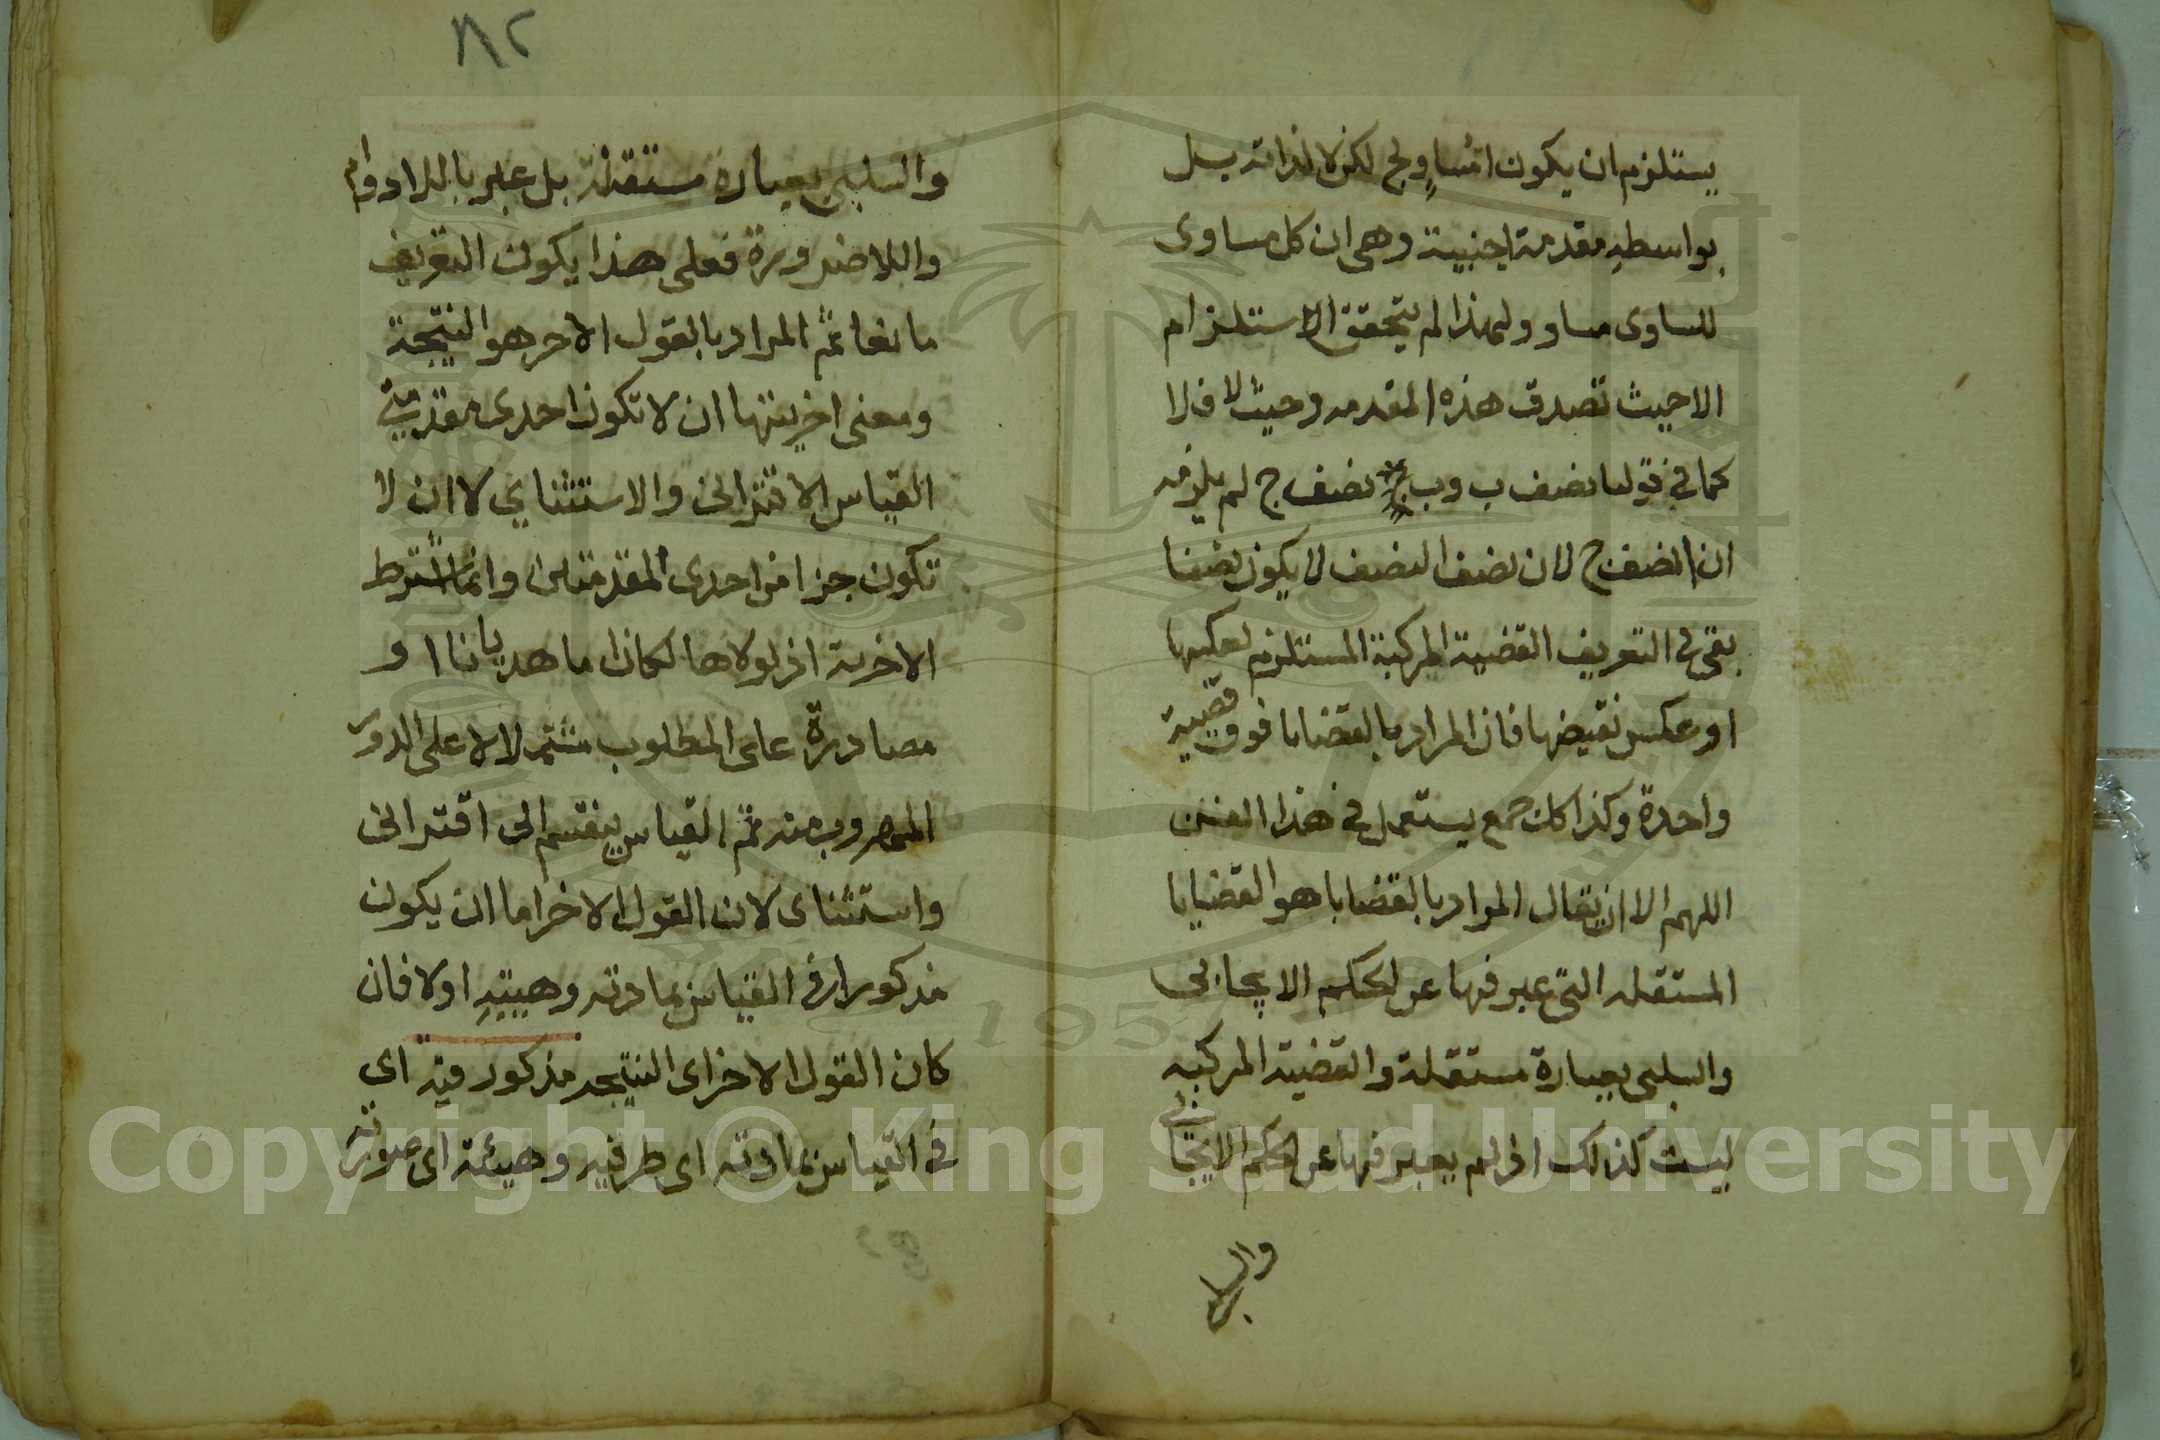 يستلزم ان يكون ا مساو لج لكن لا لذاته بل
بواسطه مقدمة اجنبية وهى ان كل مساوى
للساوى مساو ولهذا لم يتحقق الاستلزام
الا حيث تصدق هذه المقدمه وحيث لا فلا
كما فى قولنا نصف ب وب نصف ج لم يلزمه
ان ا نصف ج لان نصف النصف لا يكون نصفا
بقى فى التعريف القضية المركبة المستلزم لعكسها
او عكس نقيضها فان المراد بالقضايا فوق قضية
واحدة وكذا كل جمع يستعمل فى هذا الفن
اللهم الا ان يقال المراد بالقضايا هو القضايا
المستقله التى عبر فيها عن الحكم الايجابى
والسلبى بعبارة مستقلة والقضية المركبه
ليست كذلك اذ لم يعبر فيها عن الحكم الايجابى
والسلبى
٨٢
والسلبى بعبارة مستقلة بل عبر باللادوام
واللاضرورة فعلى هذا يكون التعريف
مانعا ثم المراد بالقول الاخر هو النتيجة
ومعنى اخريتها ان لا تكون احدى مقدمتي
القياس الاقترانى والاستثناي لا ان لا
تكون جزا من احدى المقدمتين وانما اشترط
الاخرية اذ لولاها لكان اما هديانا او
مصادرة على المطلوب مشتملا لا على الدور
المهروب منه ثم القياس ينقسم الى اقترانى
واستثناى لان القول الاخر اما ان يكون
مذكورا فى القياس بمادته وهيئته اولا فان
كان القول الاخر اى النتيجه مذكور فيه اى
فى القياس بمادته اى طرفيه وهيئته اى صورته
Copyright © King Saud University
1957